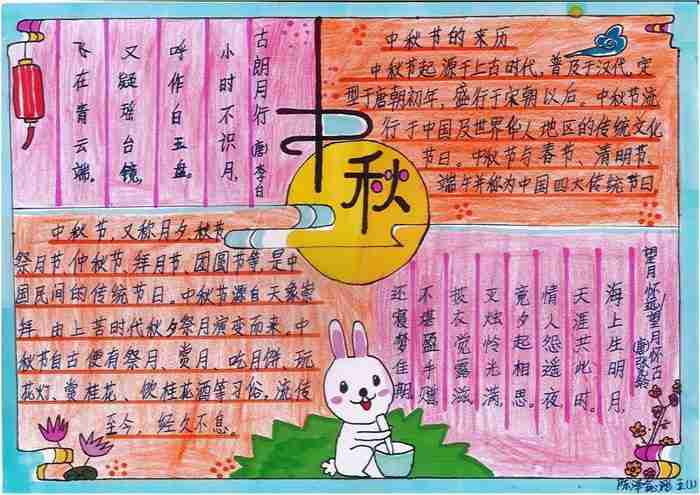 中秋
古朗月行
(唐)李白
小时不识月,
呼作白玉盘。
又疑瑶台镜,
飞在青云端。
中秋节的来历
中秋节起源于上古时代,普及于汉代,定
型于唐朝初年,盛行于宋朝以后。中秋节流
行于中国及世界华人地区的传统文化
节日。中秋节与春节、清明节、
端午并称为中国四大传统节日。
中秋节,又称月夕秋节
祭月节、仲秋节、拜月节、团圆节等,是中
国民间的传统节日。中秋节源自天象崇
拜,由上苦时代秋夕祭月演变而来。中
秋节自古便有祭月、赏月、吃月饼、玩
花灯、赏桂花、饮桂花酒等习俗,流传
至今,经久不息。
望月怀远/望月怀古
(唐)张九龄
海上生明月,
天涯共此时。
情人怨遥夜,
竟夕起相思。
灭烛怜光满,
披衣觉露滋。
不堪盈手赠,
还寝梦佳期。